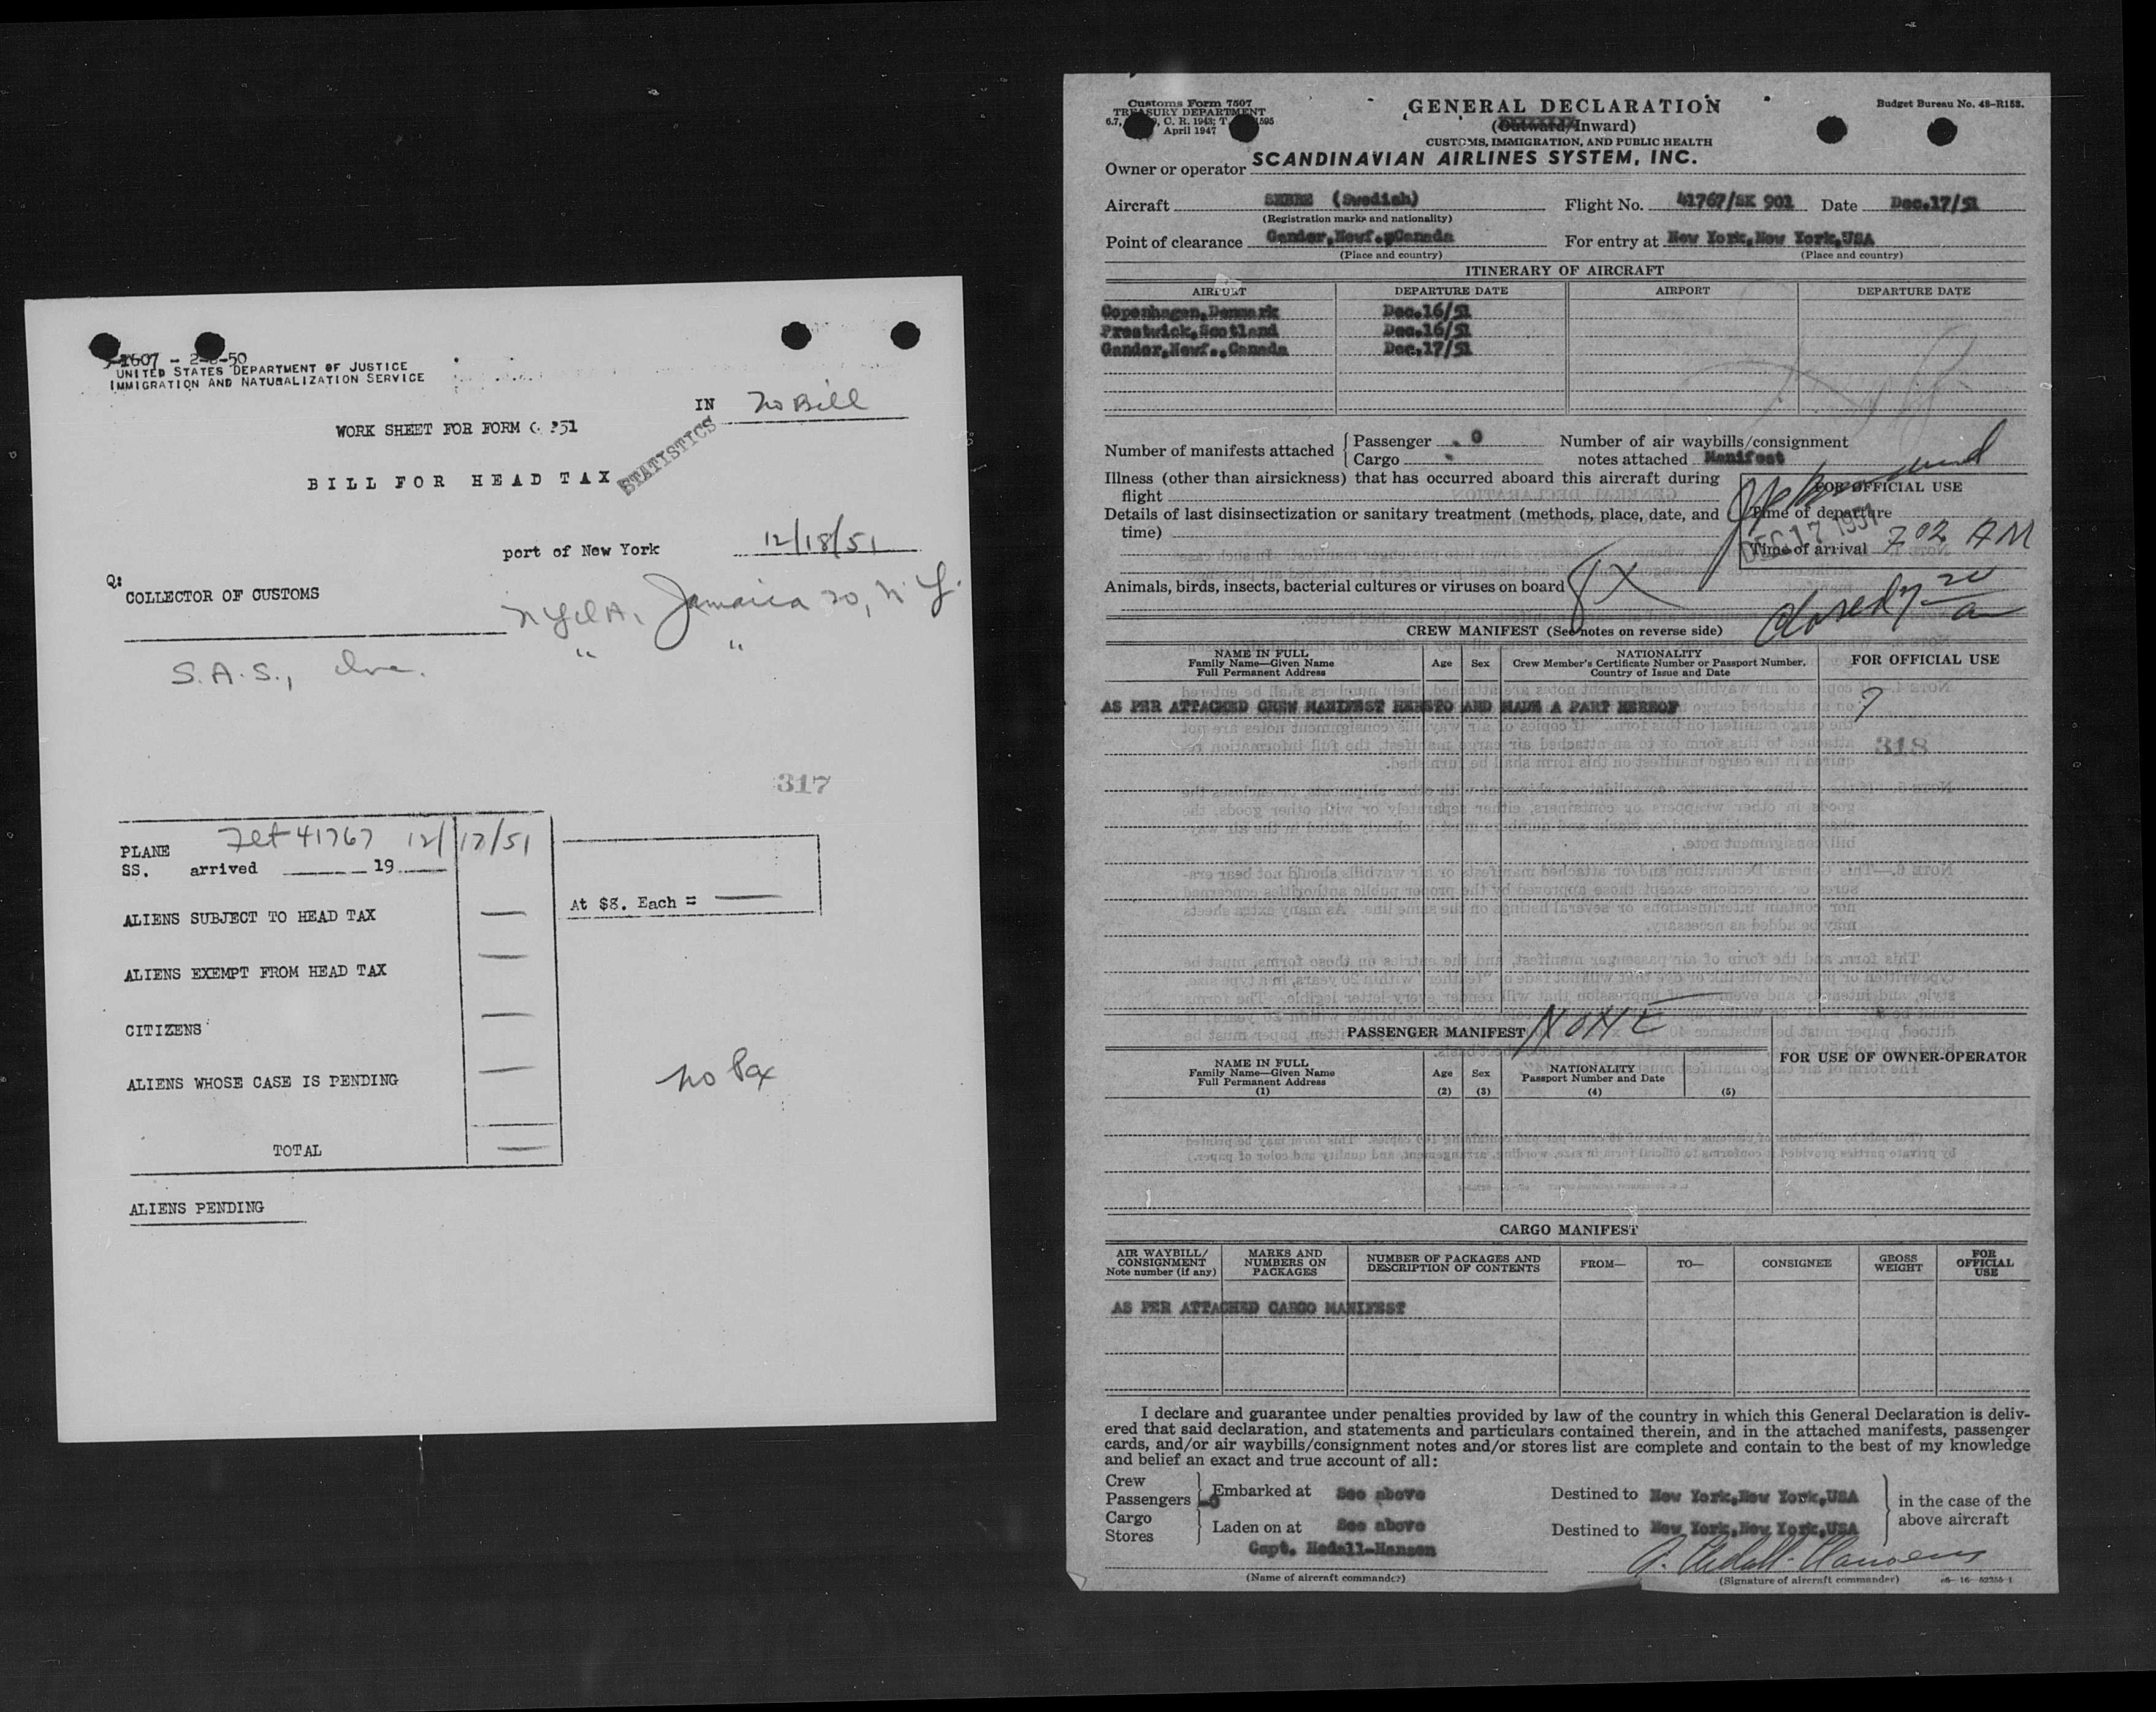 1607 - 2-50
UNITED STATES DEPARTMENT OF JUSTICE
IMMIGRATION AND NATURALIZATION SERVICE
IN No Bill
WORK SHEET FOR FORM G 351
STATISTICS
BILL FOR HEAD TAX
port of New York 12/18/51
COLLECTOR OF CUSTOMS
Jamaica 20, N.Y.
S.A.S., Inc. " "
317
PLANE Flt 41767 12/17/51
SS. arrived 19
At $8. Each = —
ALIENS SUBJECT TO HEAD TAX —
ALIENS EXEMPT FROM HEAD TAX —
CITIZENS —
ALIENS WHOSE CASE IS PENDING —
No Pax
TOTAL —
ALIENS PENDING
Customs Form 7507
TREASURY DEPARTMENT
C. R. 1943; T.
April 1947
GENERAL DECLARATION
(Outward/Inward)
CUSTOMS, IMMIGRATION, AND PUBLIC HEALTH
Budget Bureau No. 48-R153.
Owner or operator SCANDINAVIAN AIRLINES SYSTEM, INC.
Aircraft (Swedish) Flight No. 41767/SK 901 Date Dec.17/51
(Registration marks and nationality)
Point of clearance Gander,Newf.,Canada For entry at New York,New York,USA
(Place and country) (Place and country)
ITINERARY OF AIRCRAFT
AIRPORT DEPARTURE DATE AIRPORT DEPARTURE DATE
Copenhagen,Denmark Dec.16/51
Prestwick,Scotland Dec.16/51
Gander,Newf.,Canada Dec.17/51
Number of manifests attached { Passenger 0
Cargo
Number of air waybills/consignment
notes attached Manifest
Illness (other than airsickness) that has occurred aboard this aircraft during
flight
FOR OFFICIAL USE
Details of last disinsectization or sanitary treatment (methods, place, date, and
time)
Time of departure
DEC 17 1951
Time of arrival 7 02 AM
Animals, birds, insects, bacterial cultures or viruses on board
Closed 7 20 a
CREW MANIFEST (See notes on reverse side)
NAME IN FULL
Family Name—Given Name
Full Permanent Address
Age Sex
NATIONALITY
Crew Member's Certificate Number or Passport Number,
Country of Issue and Date
FOR OFFICIAL USE
AS PER ATTACHED CREW MANIFEST HERETO AND MADE A PART HEREOF
7
318
PASSENGER MANIFEST NONE
NAME IN FULL
Family Name—Given Name
Full Permanent Address
(1)
Age
(2)
Sex
(3)
NATIONALITY
Passport Number and Date
(4)
(5)
FOR USE OF OWNER-OPERATOR
CARGO MANIFEST
AIR WAYBILL/
CONSIGNMENT
Note number (if any)
MARKS AND
NUMBERS ON
PACKAGES
NUMBER OF PACKAGES AND
DESCRIPTION OF CONTENTS
FROM—
TO—
CONSIGNEE
GROSS
WEIGHT
FOR
OFFICIAL
USE
AS PER ATTACHED CARGO MANIFEST
I declare and guarantee under penalties provided by law of the country in which this General Declaration is deliv-
ered that said declaration, and statements and particulars contained therein, and in the attached manifests, passenger
cards, and/or air waybills/consignment notes and/or stores list are complete and contain to the best of my knowledge
and belief an exact and true account of all:
Crew
Passengers 0
Embarked at See above Destined to New York,New York,USA
Cargo
Stores
Laden on at See above Destined to New York,New York,USA
in the case of the
above aircraft
Capt. Hedall-Hansen
(Name of aircraft commander)
(Signature of aircraft commander)